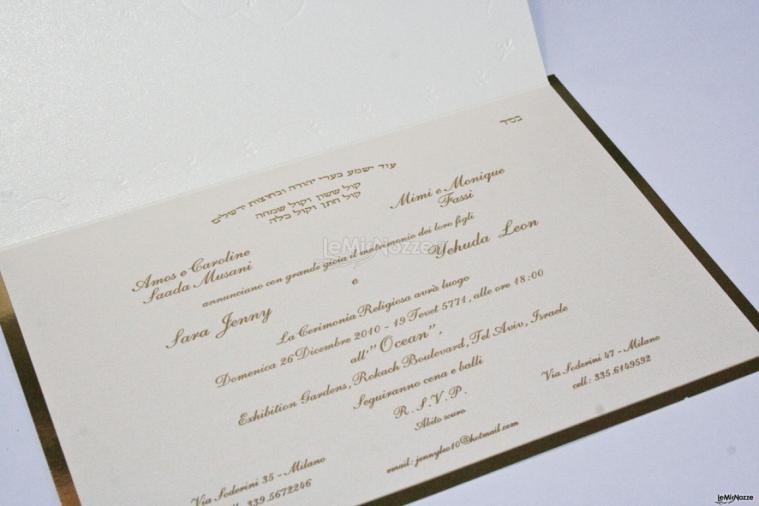 בסד
עוד ישמע בערי יהודה ובחוצות ירושלים
קול ששון וקול שמחה
קול חתן וקול כלה
Amos e Caroline
Saada Musani
Mimi e Monique
Fassi
annunciano con grande gioia il matrimonio dei loro figli
Sara Jenny
e
Yehuda Leon
La Cerimonia Religiosa avrà luogo
Domenica 26 Dicembre 2010 - 19 Tevet 5771, alle ore 18:00
all'"Ocean",
Exhibition Gardens, Rokach Boulevard, Tel Aviv, Israele
Seguiranno cena e balli
R.S.V.P.
Abito scuro
Via Soderini 35 - Milano
cell. 339.5672246
Via Soderini 47 - Milano
cell. 335.6149592
email: jennyleo10@hotmail.com
LeMieNozze.it
LeMieNozze